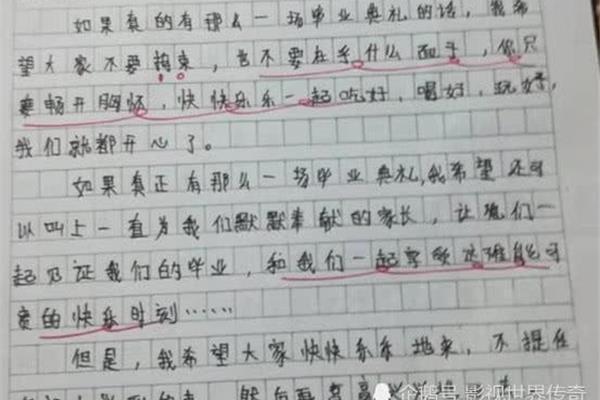 如果真的有那么一场毕业典礼的话，我希
望大家不要拘束，也不要在乎什么面子，你只
要畅开胸怀，快快乐乐一起吃好，喝好，玩好，
我们就都开心了。
如果真正有那么一场毕业典礼，我希望还可
以叫上一直为我们默默奉献的家长，让我们一
起见证我们的毕业，和我们一起享受这难能可
贵的快乐时刻……
但是，我希望大家快快乐乐地来，不提任
企鹅号 影视世界传奇